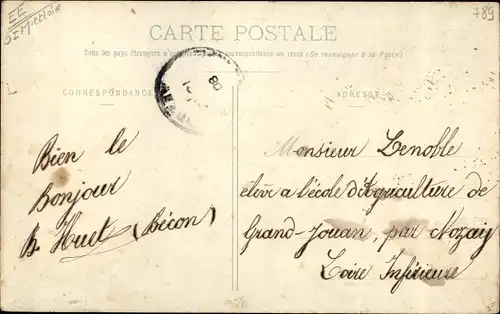 EE
789
CARTE POSTALE
Tous les pays étrangers n'acceptent pas la correspondance au recto (Se renseigner à la Poste)
CORRESPONDANCE
ADRESSE
Bien le
Bonjour
B. Huet (Bécon)
Monsieur Lenoble
élève a l'école d'Aguculture de
Grand-Jouan, par Nozay
Loire Inférieure